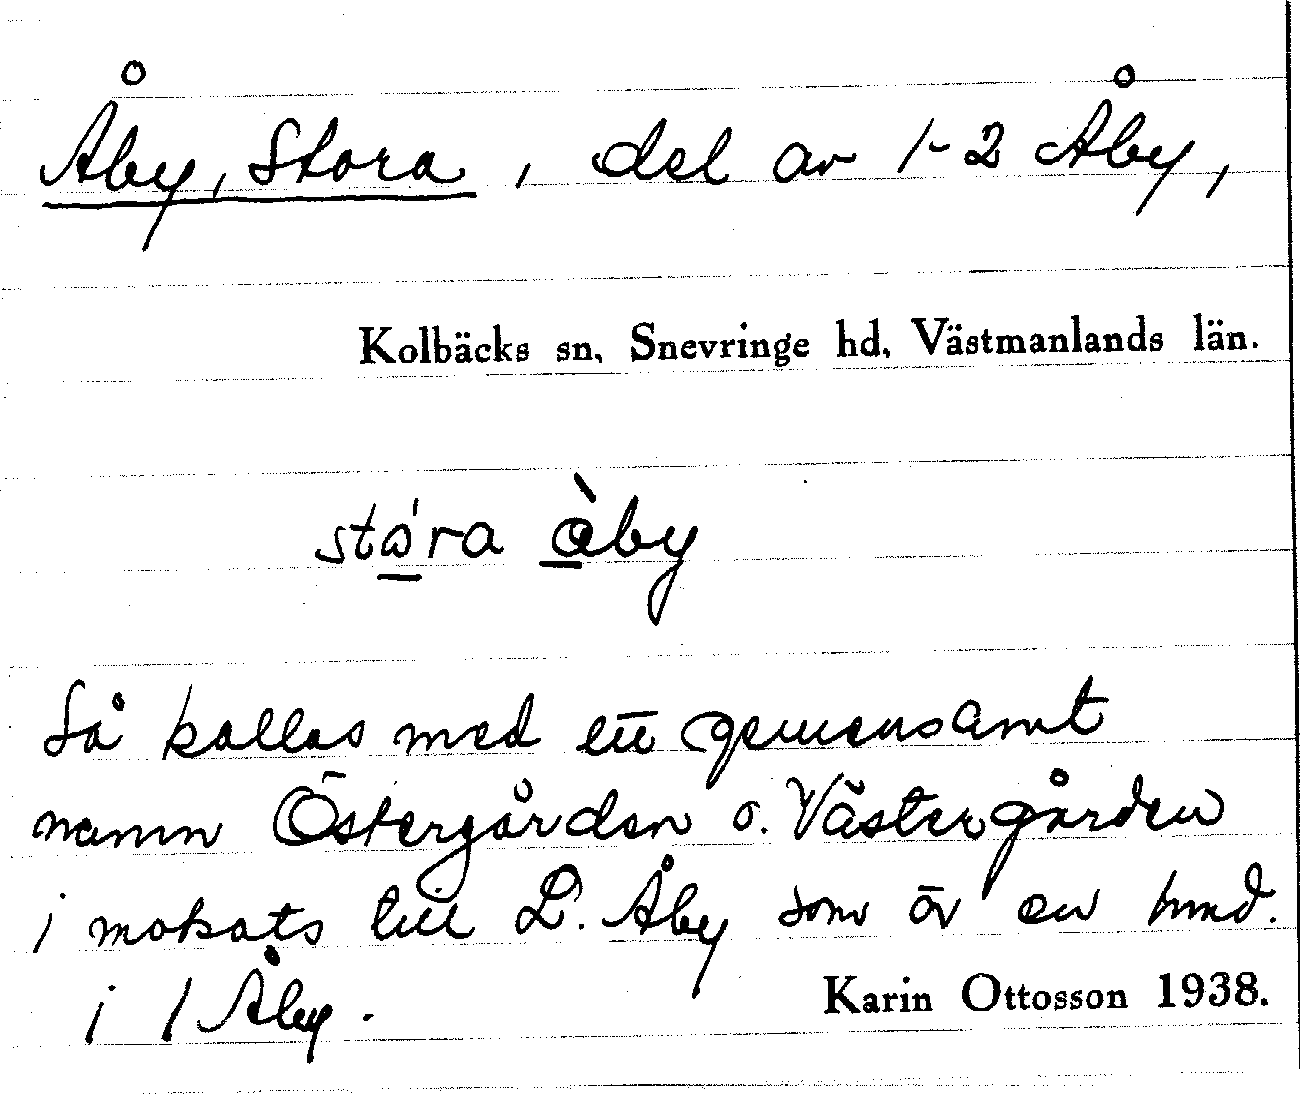 Åby, Stora, del av 1-2 Åby,
Kolbäcks sn, Snevringe hd, Västmanlands län.
stó̠ra å̠̀by
Så kallas med ett gemensamt
namn Östergården o. Västergården
i motsats till L. Åby som är en hmd.
i 1 Åby.
Karin Ottosson 1938.